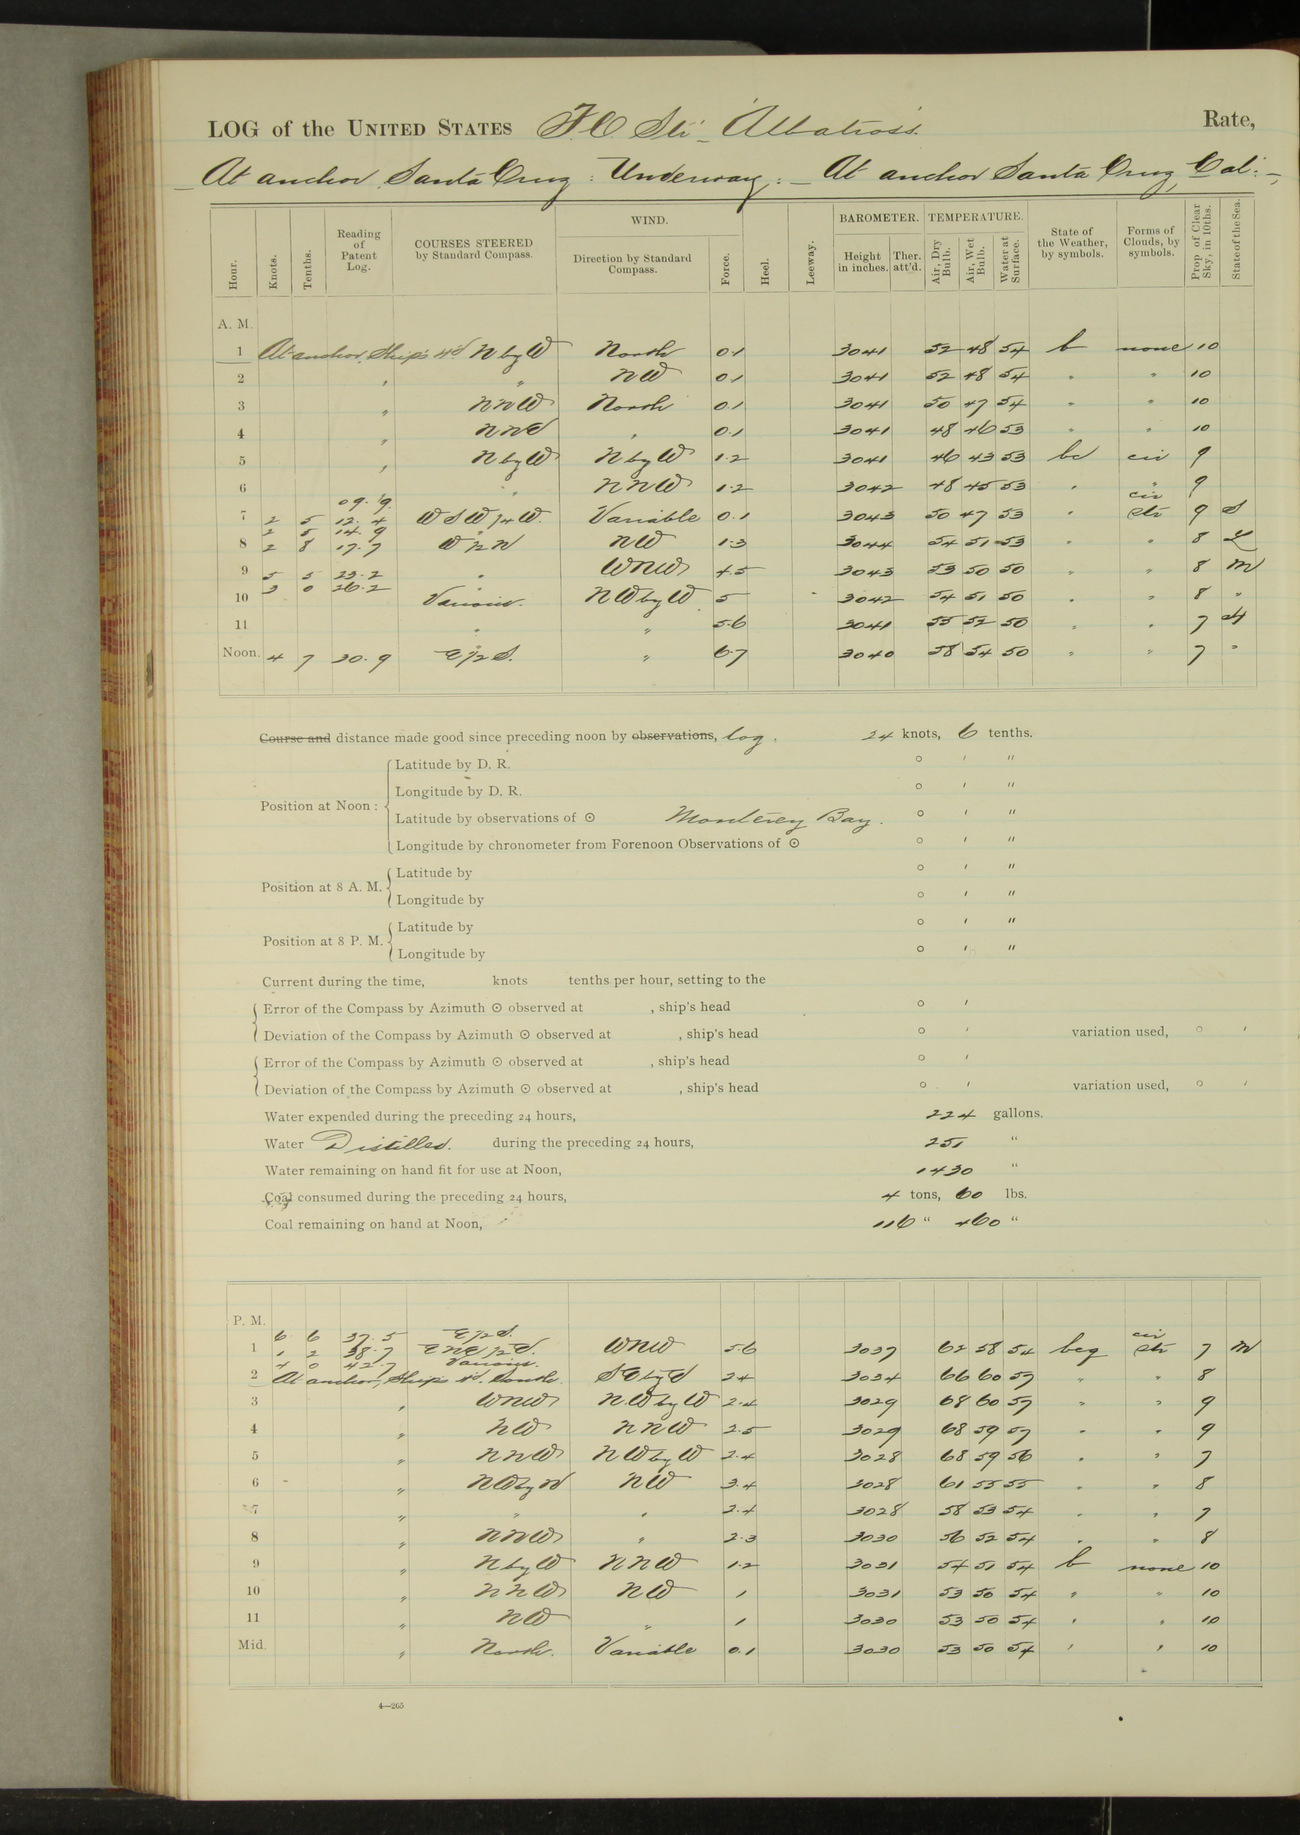 LOG of the UNITED STATES F.C. Str. "Albatross" Rate,
At anchor, Santa Cruz : Underway : — At anchor Santa Cruz, Cal : —
WIND. BAROMETER. TEMPERATURE.
Hour. Knots. Tenths. Reading of Patent Log. COURSES STEERED by Standard Compass. Direction by Standard Compass. Force. Heel. Leeway. Height in inches. Ther. att'd. Air, Dry Bulb. Air, Wet Bulb. Water at Surface. State of the Weather, by symbols. Forms of Clouds, by symbols. Prop. of Clear Sky, in 10ths. State of the Sea.
A. M.
1 At anchor, Ship's H'd N by W North 0.1 3041 52 48 54 b none 10
2 " " NW 0.1 3041 52 48 54 " " 10
3 " NNW North 0.1 3041 50 47 54 " " 10
4 " NNE " 0.1 3041 48 46 53 " " 10
5 " N by W N by W 1.2 3041 46 43 53 bc cir 9
6 " NNW 1.2 3042 48 45 53 " " 9
09.9
7 2 5 12.4 WSW 1/4 W. Variable 0.1 3043 50 47 53 " cir str 9 S
2 5 14.9 "
8 2 8 17.7 W 1/2 N NW 1.3 3044 54 51 53 " " 8 L
9 5 5 23.2 " WNW 4.5 3043 53 50 50 " " 8 M
3 0 26.2 "
10 Various. NW by W 5 3042 54 51 50 " " 8 "
11 " " 5.6 3041 55 52 50 " " 7 H
Noon. 4 7 30.9 E 1/2 S. " 6.7 3040 58 54 50 " " 7 "
Course and distance made good since preceding noon by observations, log. 24 knots, 6 tenths.
Latitude by D. R. ° ′ ″
Longitude by D. R. ° ′ ″
Position at Noon :
Latitude by observations of ☉ Monterey Bay. ° ′ ″
Longitude by chronometer from Forenoon Observations of ☉ ° ′ ″
Latitude by ° ′ ″
Position at 8 A. M.
Longitude by ° ′ ″
Latitude by ° ′ ″
Position at 8 P. M.
Longitude by ° ′ ″
Current during the time, knots tenths per hour, setting to the
Error of the Compass by Azimuth ☉ observed at , ship's head ° ′
Deviation of the Compass by Azimuth ☉ observed at , ship's head ° ′ variation used, ° ′
Error of the Compass by Azimuth ☉ observed at , ship's head ° ′
Deviation of the Compass by Azimuth ☉ observed at , ship's head ° ′ variation used, ° ′
Water expended during the preceding 24 hours, 224 gallons.
Water Distilled. during the preceding 24 hours, 251 "
Water remaining on hand fit for use at Noon, 1430 "
Coal consumed during the preceding 24 hours, 4 tons, 60 lbs.
Coal remaining on hand at Noon, 116 " 460 "
P. M.
6 6 37.5 E 1/2 S.
1 1 2 38.7 ENE 1/2 E. WNW 5.6 3037 62 58 54 bcq cir str 7 M
4 0 42.7 Various.
2 At anchor, Ship's H'd. South. SE by E 3.4 3034 66 60 57 " " 8
3 " WNW NW by W 2.4 3029 68 60 57 " " 9
4 " NW NNW 2.5 3029 68 59 57 " " 9
5 " NNW NW by W 2.4 3028 68 59 56 " " 7
6 " NW by N NW 3.4 3028 61 55 55 " " 8
7 " " " 2.4 3028 58 53 54 " " 7
8 " NNW " 2.3 3030 56 52 54 " " 8
9 " N by W NNW 1.2 3031 54 51 54 b none 10
10 " NNW NW 1 3031 53 50 54 " " 10
11 " NW " 1 3030 53 50 54 " " 10
Mid. " North. Variable 0.1 3030 53 50 54 " " 10
4—265